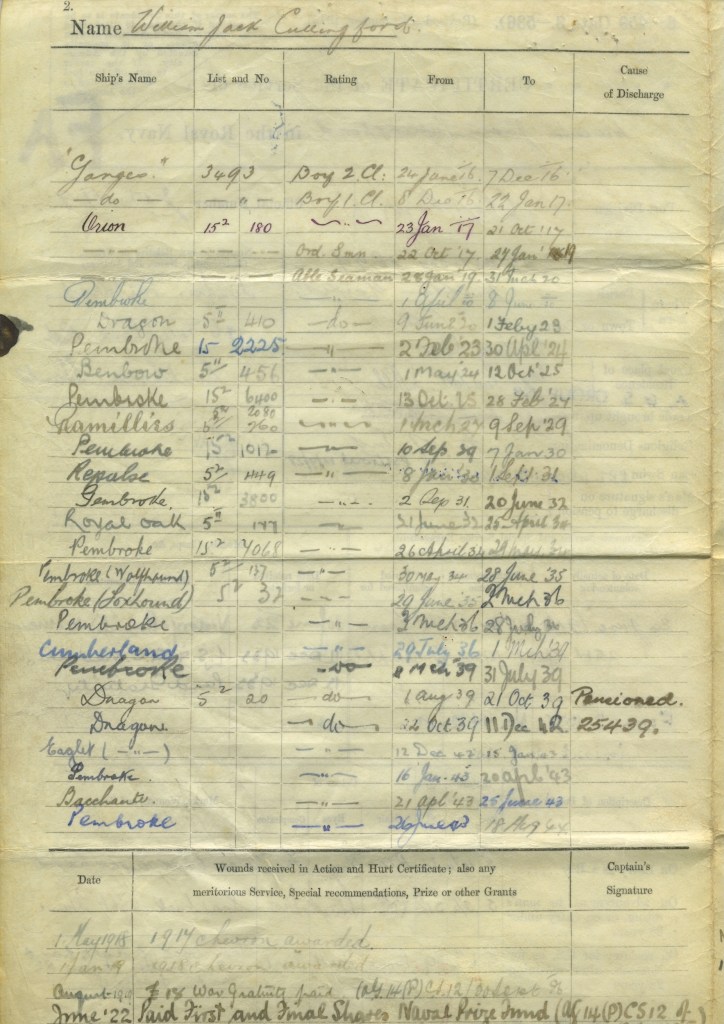 2.
Name William Jack Cullingford.
Ship's Name List and No Rating From To Cause of Discharge
"Ganges." 3493 Boy 2 Cl: 24 June '16. 7 Dec '16
— do — — " — Boy 1. Cl. 8 Dec '16 22 Jan '17
Orion 15² 180 — " — 23 Jan '17 21 Oct '17
— " — — " — — " — Ord. Smn. 22 Oct '17 27 Jan '19
— " — — " — — " — Able Seaman 28 Jan '19. 31 Mch 20
Pembroke — " — 1 April 20 8 June
Dragon 5" 410 — do — 9 June 20 1 Feby 23
Pembroke 15 2225 — " — 2 Feb 23 30 Apl '24
Benbow 5" 456 — " — 1 May 24 12 Oct '25
Pembroke 15² 6400 — " — 13 Oct. 25 28 Feb '27
Ramillies 5² 760 — " — 1 Mch 27 9 Sep '29
Pembroke 15² — " — 10 Sep 29 7 Jan 30
Repulse 5² — " — 8 1 Sept. 31
Pembroke. 15² 3800 — " — 2 Sep 31. 20 June 32
Royal Oak 5" — " — 21 June 32 25 April 34
Pembroke 15² 7068 — " — 26 April 34
Pembroke (Wolfhound) 5² 137 — " — 30 May 34 28 June '35
Pembroke (Foxhound) 5² 32 — " — 29 June '35 2 Mch 36
Pembroke — " — 3 Mch 36 28 July 36
Cumberland — " — 29 July 36 1 Mch '39
Pembroke — do — 2 Mch '39 31 July 39
Dragon 5² 20 — do — 1 Aug 39 21 Oct. 39 Pensioned.
Dragon — do — 22 Oct 39 11 Dec 42 25439.
Eaglet ( — " — ) — " — 12 Dec 42 15 Jan 43
Pembroke. — " — 16 Jan. 43 20 Apl '43
Bacchante. — " — 21 Apl '43 25 June 43
Pembroke — " — 26 June 43
Date Wounds received in Action and Hurt Certificate; also any meritorious Service, Special recommendations, Prize or other Grants Captain's Signature
1 May 1918 1917 chevron awarded
1 Jan 1918 chevron awarded
August War Gratuity paid
June '22 Paid First and Final Shares Naval Prize Fund (AG 14(P) CS 12 of )